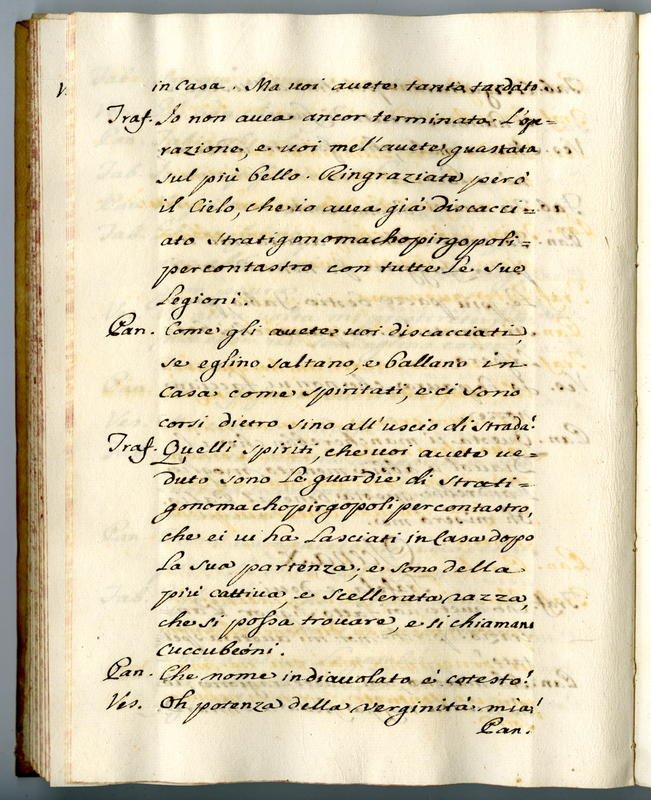 V.
in casa. Ma voi avete tanto tardato.
Traf. Io non avea ancor terminata L'op=
razione, e voi mel'avete guastata
sul più bello. Ringraziate però
il Cielo, che io avea già discacci=
ato Stratigonomachopirgopoli=
percontastro con tutte Le sue
Legioni.
Pan. Come gli avete voi discacciati,
se eglino saltano, e ballano in
casa come spiritati, e ci sono
corsi dietro sino all'uscio di strada!
Traf. Quelli spiriti, che voi avete ve=
duto sono Le guardie di Strati=
gonomachopirgopolipercontastro,
che ei vi ha Lasciati in Casa dopo
La sua partenza; e sono della
più cattiva, e scellerata razza,
che si possa trovare, e si chiamano
Cuccubeòni.
Pan. Che nome indiavolato è cotesto!
Ves. Oh potenza della verginità mia!
Pan.